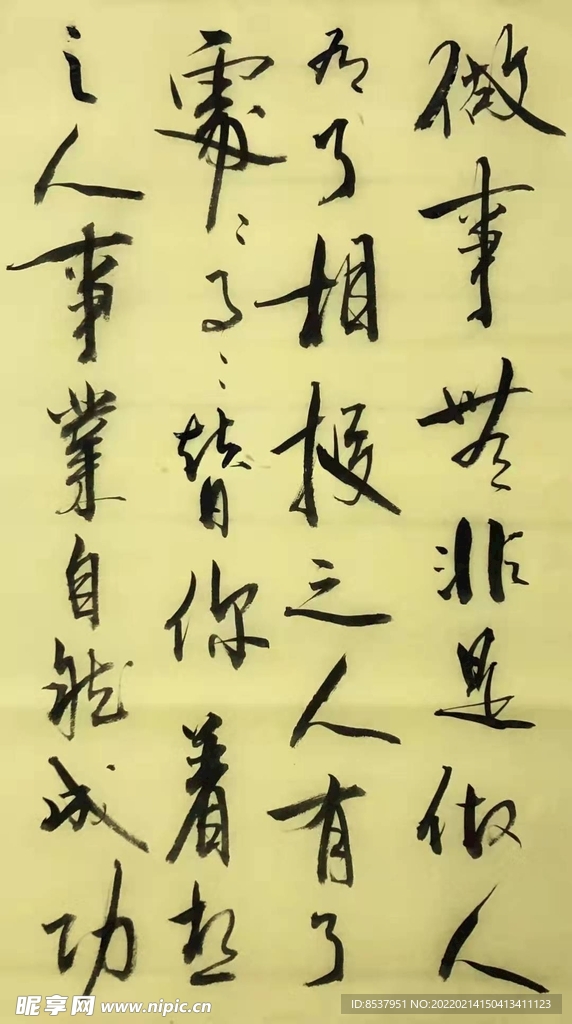 做事無非是做人
有了相援之人有了
處々事々替你着想
之人事業自然成功
昵享网 www.nipic.cn
ID:8537951 NO:20220214150413411123